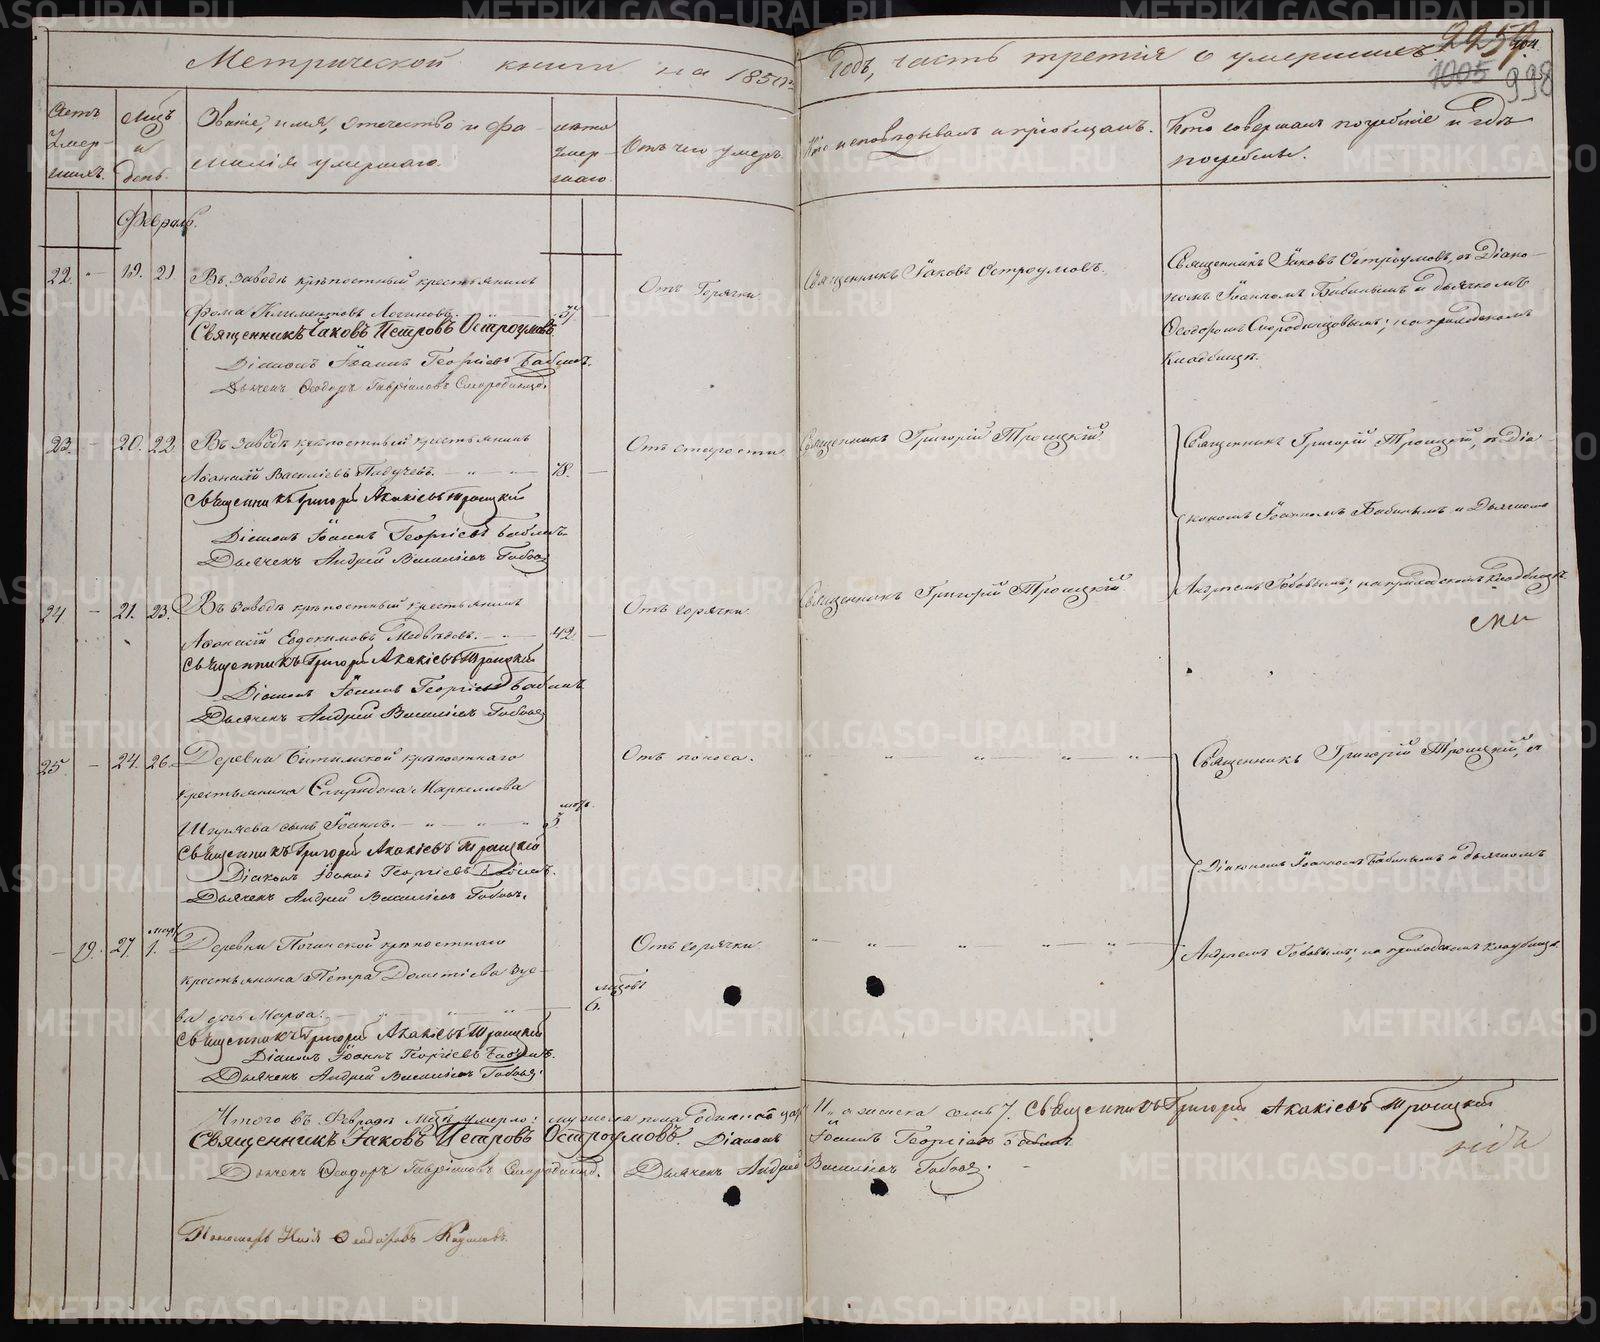 Метрической книги на 1850й Годъ, часть третія о умершихъ
2257.
1005 998
Счетъ Умершихъ.
Мцъ и день.
Званіе, имя, отечество и фамилія умершаго.
лѣта умершаго.
Отъ чего умеръ.
Кто исповѣдывалъ и пріобщалъ.
Кто совершалъ погребеніе и гдѣ погребены.
Февраль.
22. 19. 21. Въ заводѣ крѣпостный крестьянинъ
Фома Климентовъ Логиновъ. 37
Отъ Горячки
Священникъ Іаковъ Остроумовъ.
Священникъ Іаковъ Остроумовъ, съ Діако-
номъ Іоанномъ Бабинымъ и дьячкомъ
Ѳеодоромъ Смородинцовымъ; на приходскомъ
Кладбищѣ.
Священникъ Іаковъ Петровъ Остроумовъ
Діаконъ Іоаннъ Георгіевъ Бабинъ.
Дьячекъ Ѳеодоръ Гавріиловъ Смородинцовъ
23. - 20. 22 Въ заводѣ крѣпостный крестьянинъ
Аѳанасій Василіевъ 78. -
Отъ старости
Священникъ Григорій Троицкій
Священникъ Григорій Троицкій, съ Діа
кономъ Іоанномъ Бабинымъ и Дьячкомъ
Андреемъ Бобовымъ; на приходскомъ Кладбищѣ.
Священникъ Григорій Акакіевъ Троицкій
Діаконъ Іоаннъ Георгіевъ Бабинъ.
Дьячекъ Андрей Василіевъ
24 - 21. 23. Въ заводѣ крѣпостный крестьянинъ
Аѳанасій Евдокимовъ Медвѣдевъ. 42. -
Отъ горячки
Священникъ Григорій Троицкій
Священникъ Григорій Акакіевъ Троицкій
Діаконъ Іоаннъ Георгіевъ Бабинъ
Дьячекъ Андрей Василіевъ
25. - 24. 26. Деревни Битимской крѣпостнаго
крестьянина Спиридона Маркеллова
сынъ Іоаннъ. 3
Отъ поноса.
Священникъ Григорій Троицкій, съ
Діакономъ Іоанномъ Бабинымъ и дьячкомъ
Андреемъ Бобовымъ; на приходскомъ кладбищѣ.
Священникъ Григорій Акакіевъ Троицкій
Діаконъ Іоаннъ Георгіевъ Бабинъ.
Дьячекъ Андрей Василіевъ
- 19. 27. 1. Деревни крѣпостнаго
крестьянина Петра Дометіева Зуе-
ва дочь Марѳа. 6.
Отъ горячки
Священникъ Григорій Акакіевъ Троицкій
Діаконъ Іоаннъ Георгіевъ Бабинъ.
Дьячекъ Андрей Василіевъ
Итого въ Февралѣ мцѣ умерло: мужеска пола одинадцать 11, а женска семь 7. Священникъ Григорій Акакіевъ Троицкій
Священникъ Іаковъ Петровъ Остроумовъ. Діаконъ Іоаннъ Георгіевъ Бабинъ
Дьячекъ Ѳеодоръ Гавріиловъ Смородинцовъ. Дьячекъ Андрей Василіевъ
Пономарь Илія Ѳеодоровъ
METRIKI.GASO-URAL.RU